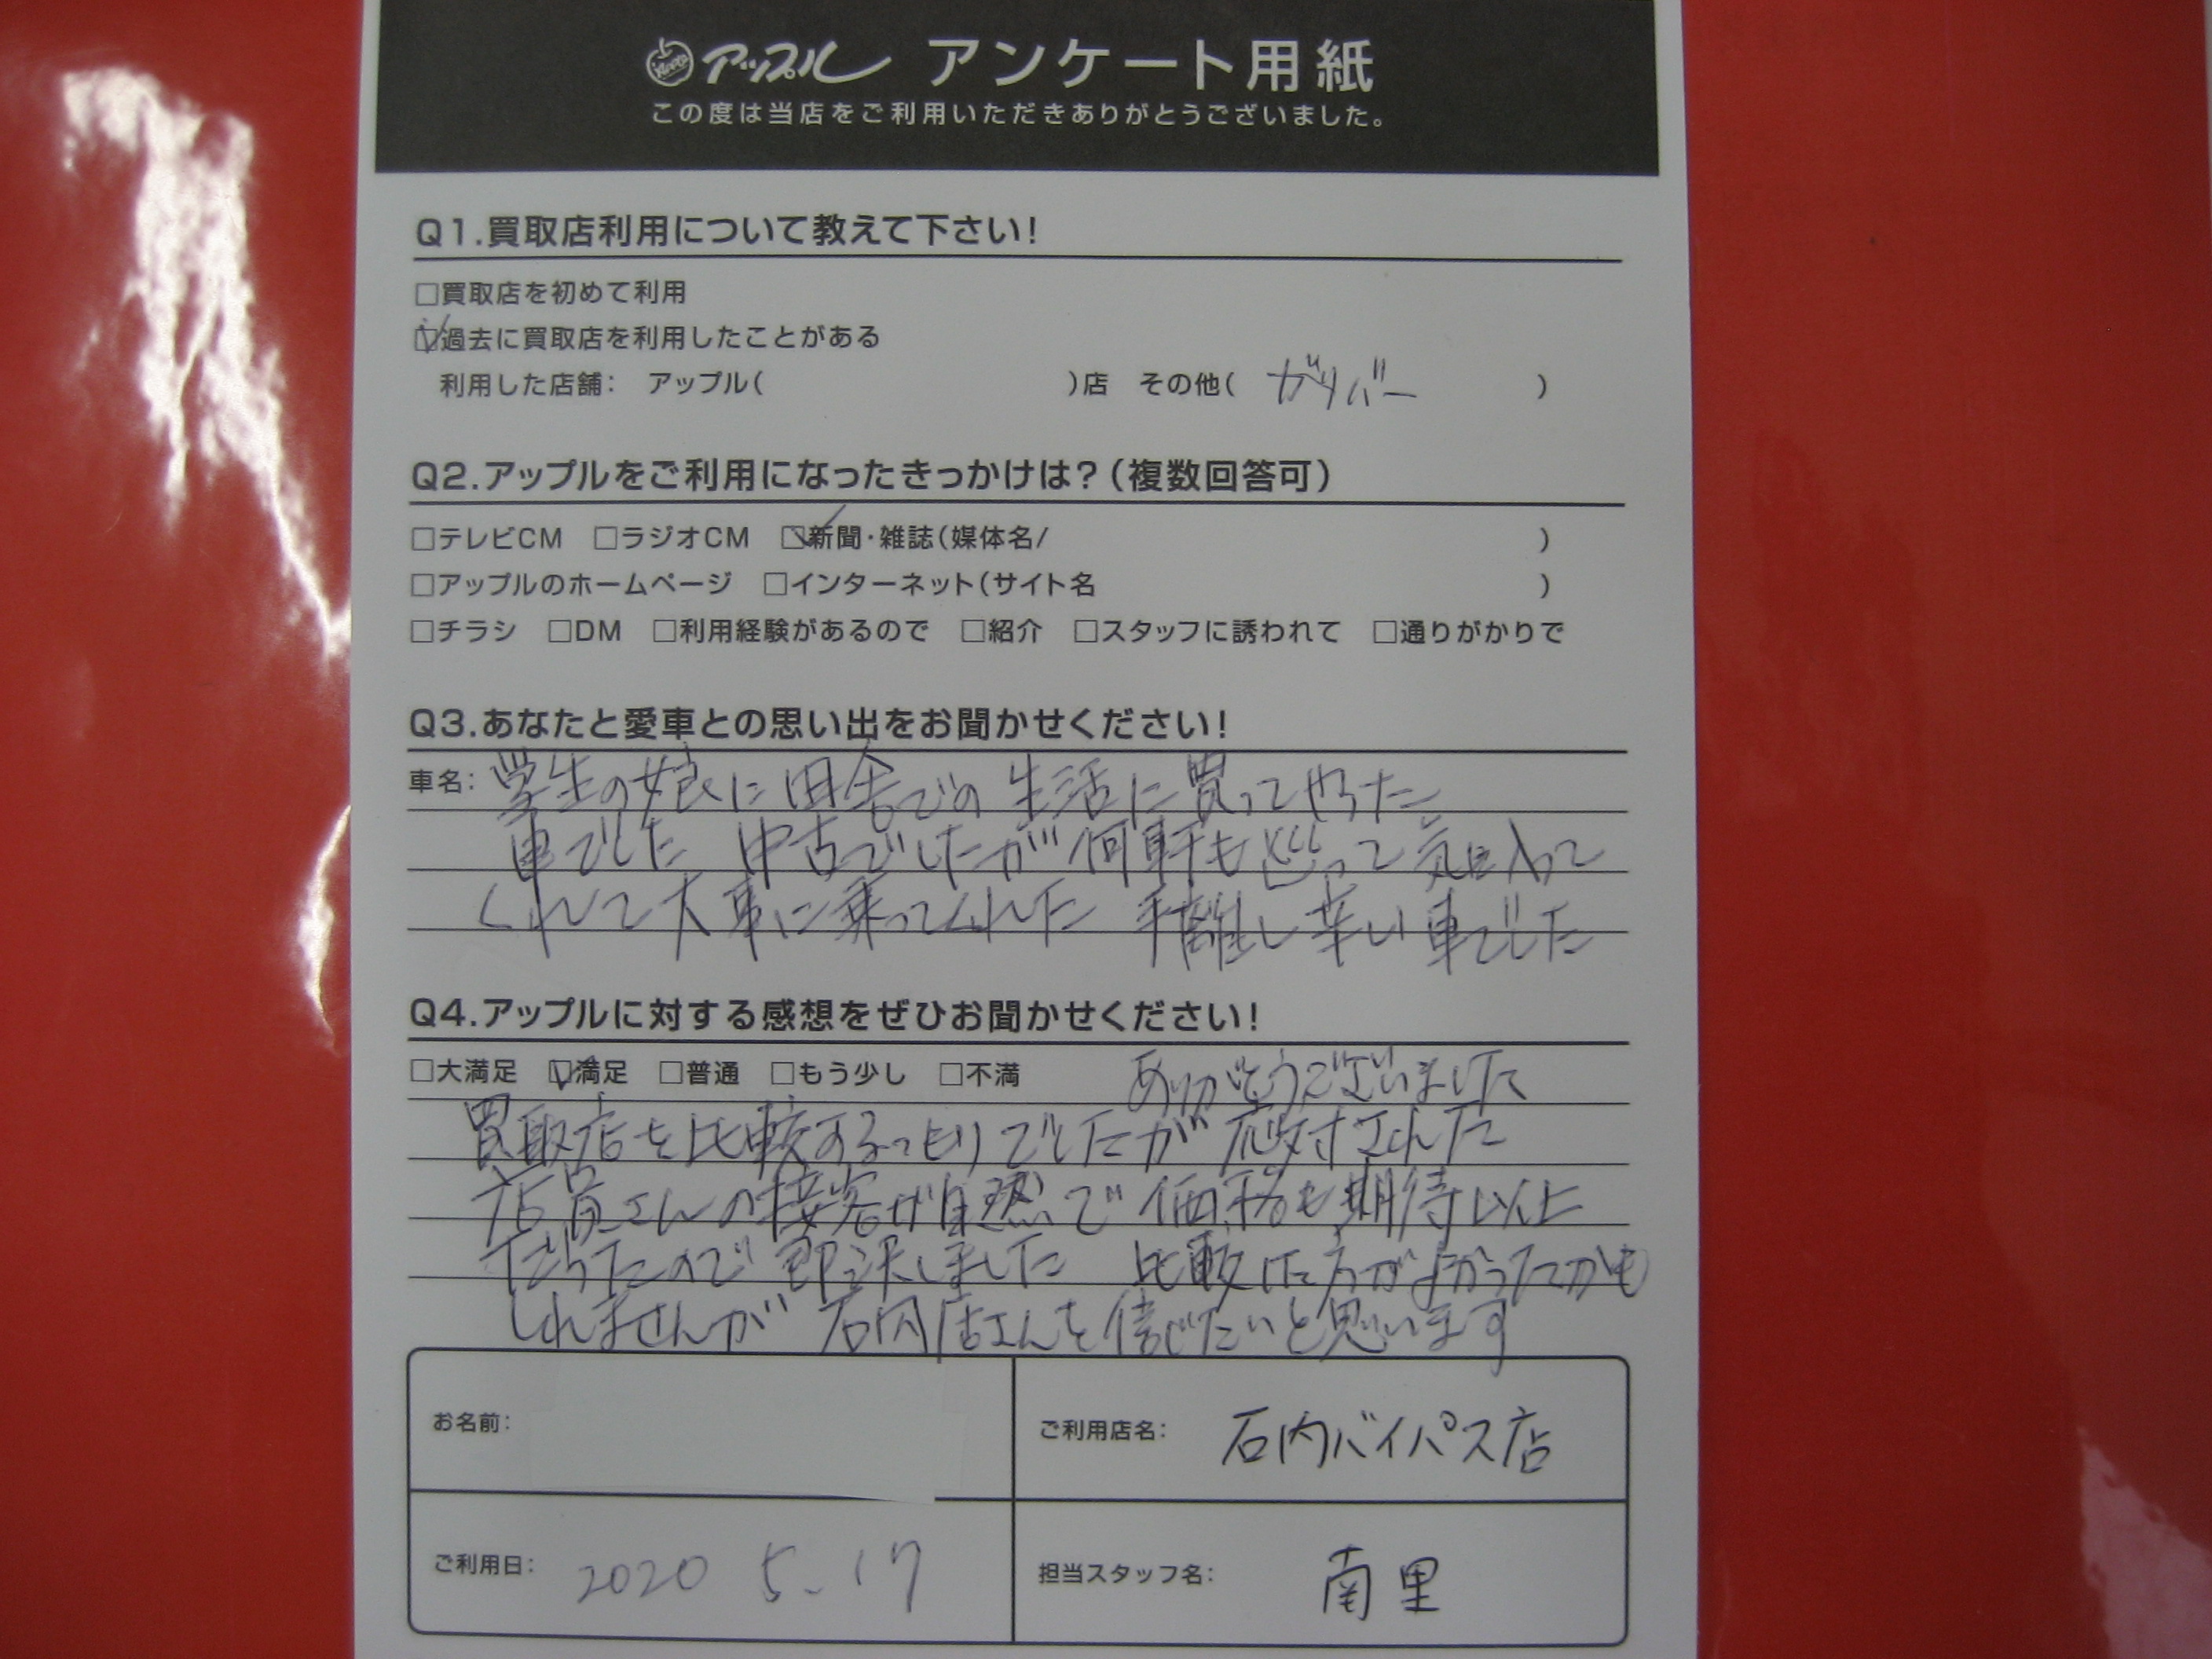 Apple アップル アンケート用紙
この度は当店をご利用いただきありがとうございました。
Q1.買取店利用について教えて下さい!
□買取店を初めて利用
☑過去に買取店を利用したことがある
利用した店舗: アップル( )店 その他( ガリバー )
Q2.アップルをご利用になったきっかけは?(複数回答可)
□テレビCM □ラジオCM ☑新聞・雑誌(媒体名/ )
□アップルのホームページ □インターネット(サイト名 )
□チラシ □DM □利用経験があるので □紹介 □スタッフに誘われて □通りがかりで
Q3.あなたと愛車との思い出をお聞かせください!
車名: 学生の娘に田舎での生活に買ってやった
車でした 中古でしたが何軒も巡って気に入って
くれて大事に乗ってくれた 手離し辛い車でした
Q4.アップルに対する感想をぜひお聞かせください!
□大満足 ☑満足 □普通 □もう少し □不満 ありがとうございました
買取店を比較するつもりでしたが 応対された
店員さんの接客が自然で 価格も期待以上
だったので 即決しました 比較した方がよかったかも
しれませんが 石内店さんを信じたいと思います
お名前:
ご利用店名: 石内バイパス店
ご利用日: 2020 5.17
担当スタッフ名: 南里